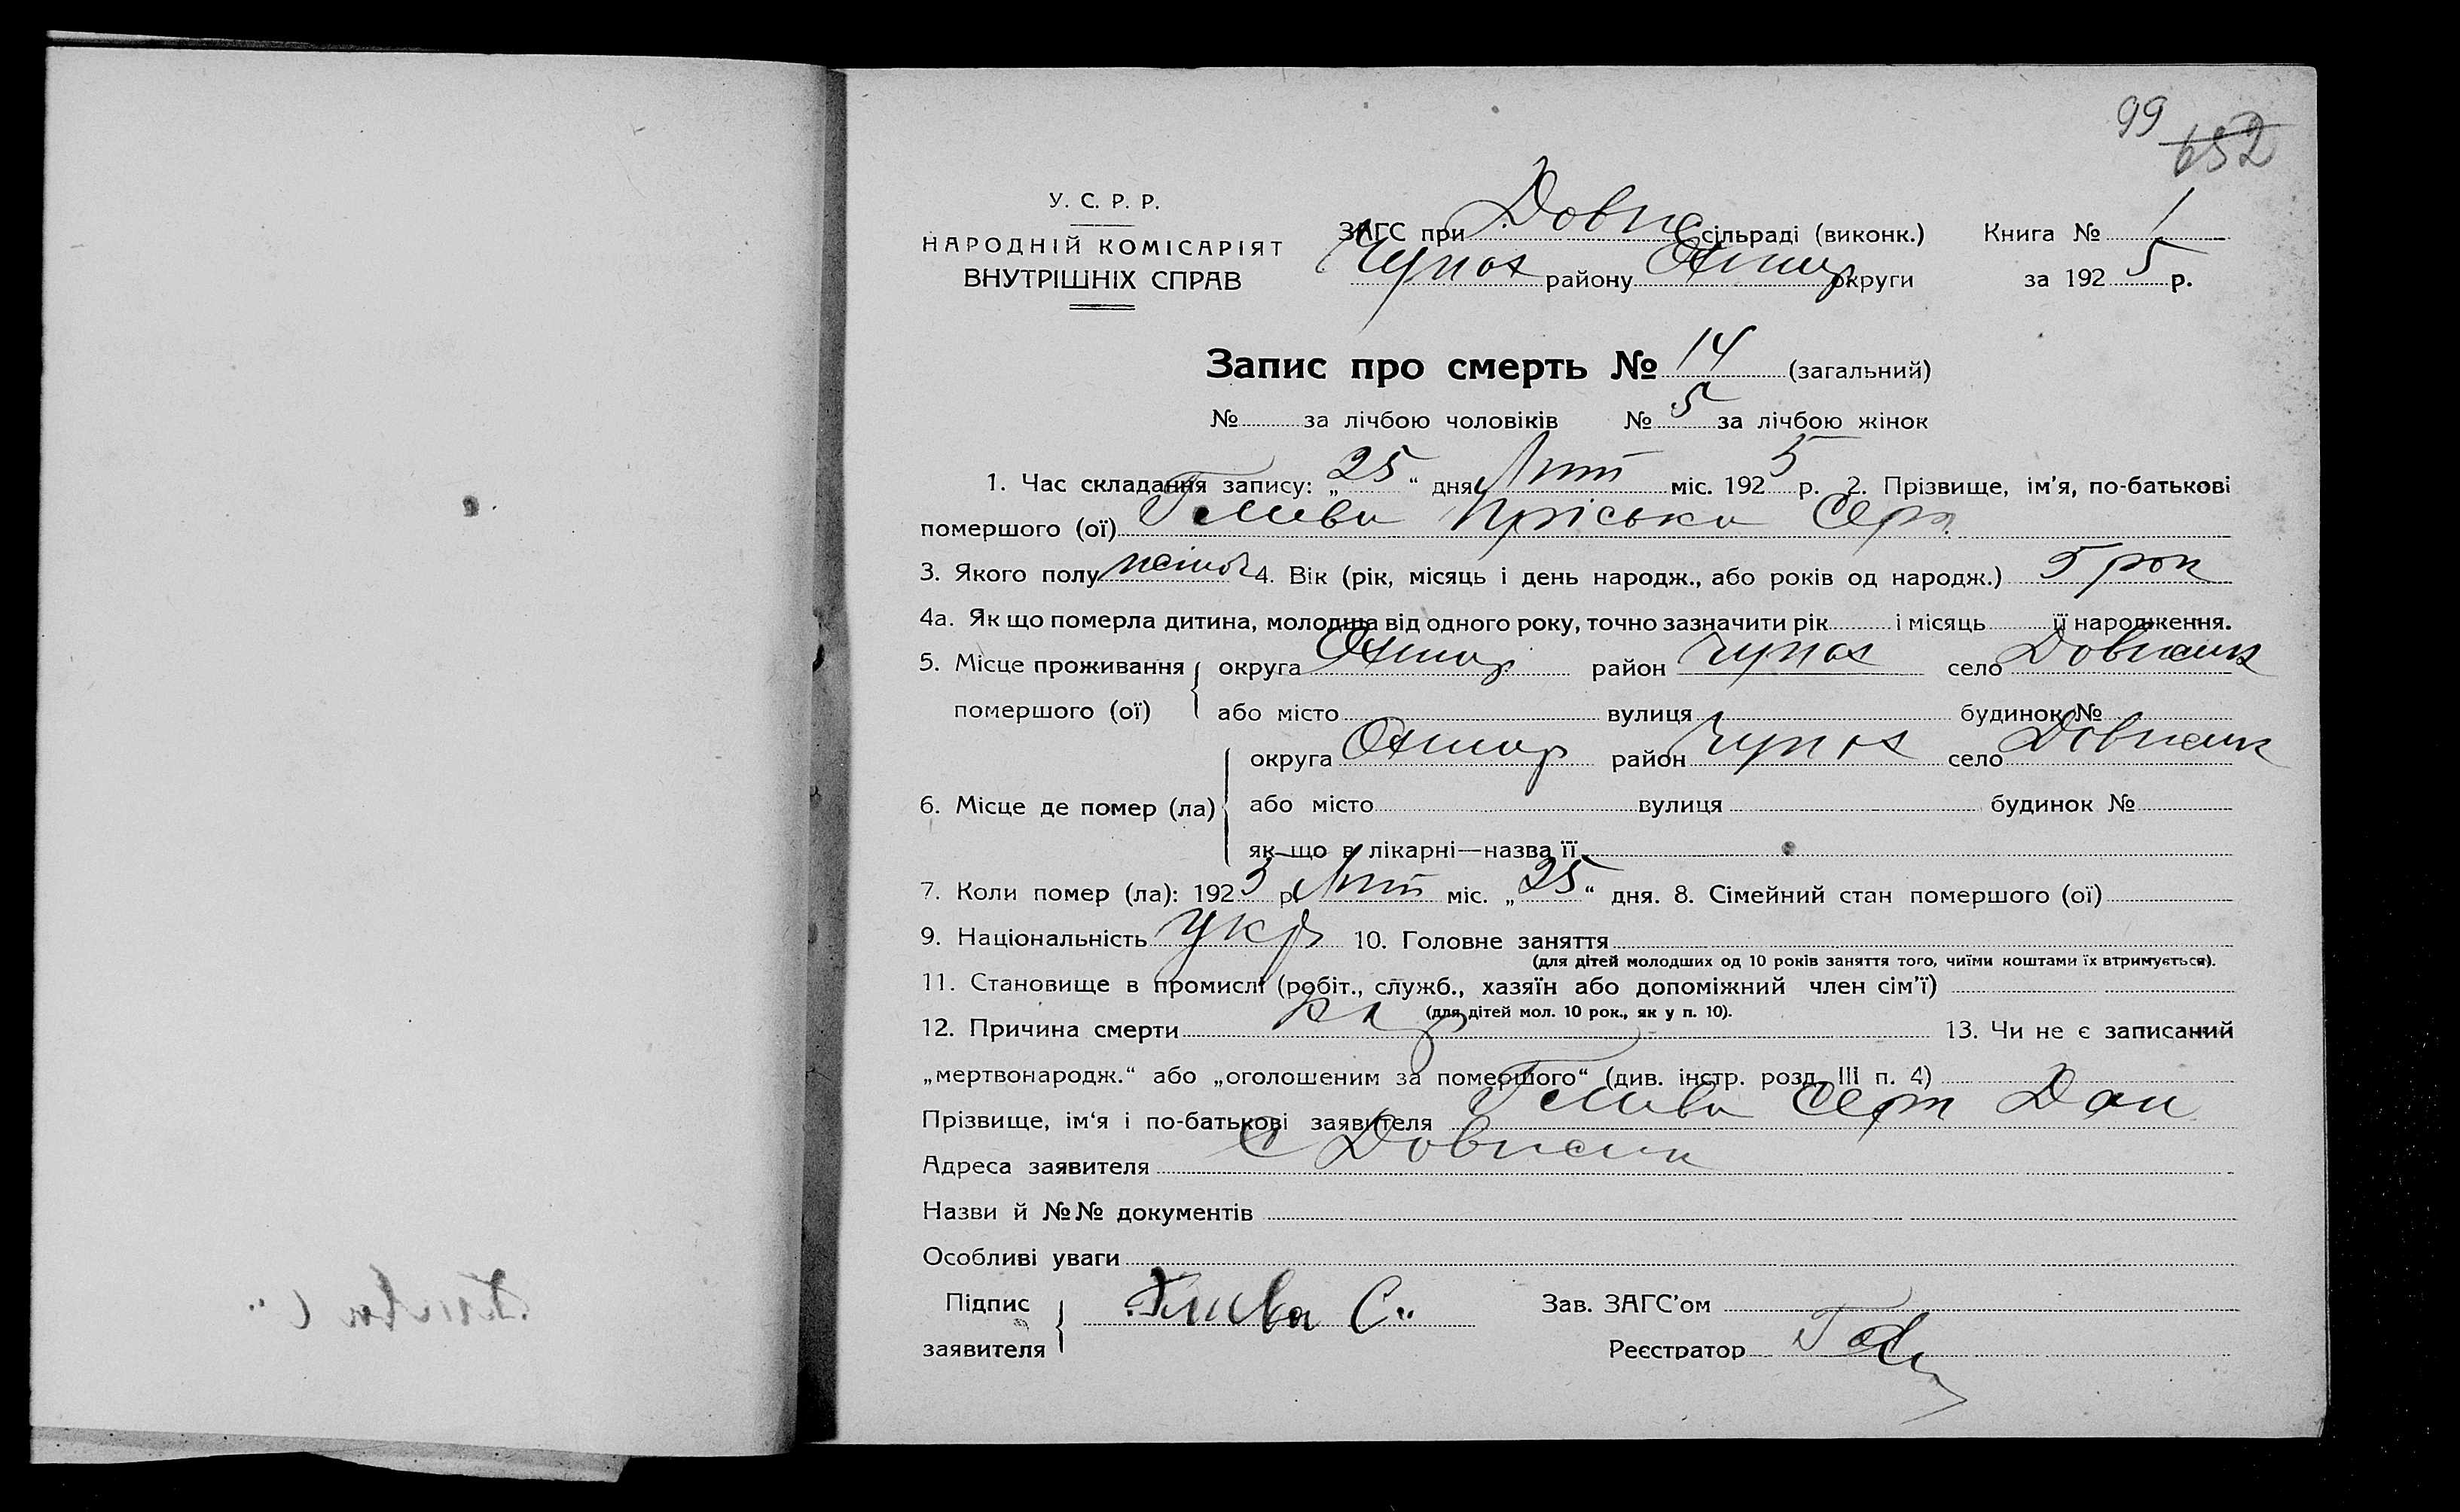 99
652
У. С. Р. Р.
НАРОДНІЙ КОМІСАРІЯТ
ВНУТРІШНІХ СПРАВ
ЗАГС при Довж сільраді (виконк.) Книга № 1
Чупах району Охтир округи за 1925 р.
Запис про смерть № 14 (загальний)
№ за лічбою чоловіків № 5 за лічбою жінок
1. Час складання запису: „25“ дня Лют міс. 1925 р. 2. Прізвище, ім'я, по-батькові
помершого (ої) Пріська Серг.
3. Якого полу жіноч 4. Вік (рік, місяць і день народж., або років од народж.) 5 рок
4а. Як що померла дитина, молодша від одного року, точно зазначити рік і місяць її народження.
5. Місце проживання округа Охтир район Чупах село Довжик
помершого (ої) або місто вулиця будинок №
округа Охтир район Чупах село Довжик
6. Місце де помер (ла) або місто вулиця будинок №
як-що в лікарні—назва її
7. Коли помер (ла): 1925 р. Лют міс. „25“ дня. 8. Сімейний стан помершого (ої)
9. Національність Укр 10. Головне заняття
(для дітей молодших од 10 років заняття того, чиїми коштами їх втримується).
11. Становище в промислі (робіт., служб., хазяїн або допоміжний член сім'ї)
(для дітей мол. 10 рок., як у п. 10).
12. Причина смерти 13. Чи не є записаний
„мертвонародж.“ або „оголошеним за помершого“ (див. інстр. розд. III п. 4)
Прізвище, ім'я і по-батькові заявителя Серг Дан
Адреса заявителя С Довжик
Назви й №№ документів
Особливі уваги
Підпис Зав. ЗАГС'ом
заявителя Реєстратор